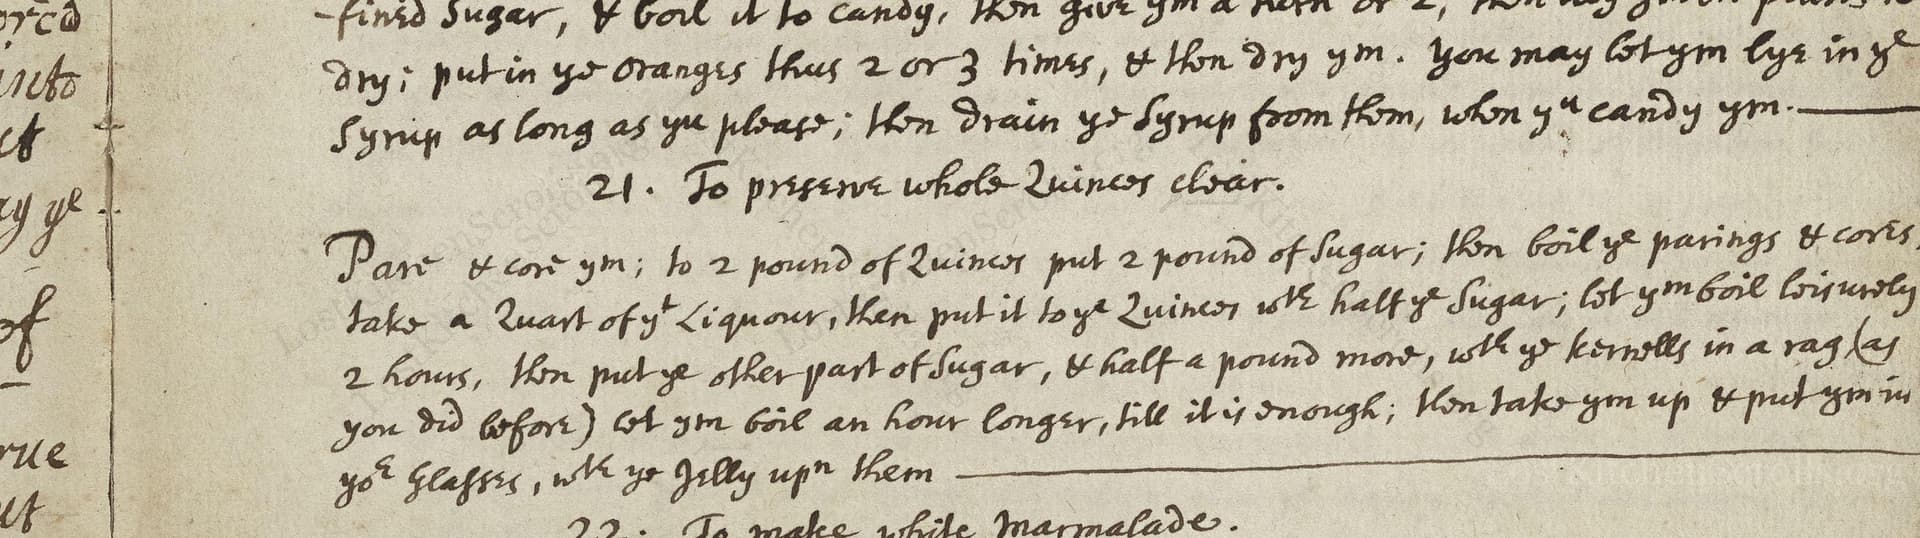 -fined Sugar, & boil it to candy, then give ym a turn or 2, then lay
dry; put in ye Oranges thus 2 or 3 times, & then dry ym. You may let ym lye in ye
Syrup as long as yu please; then drain ye Syrup from them, when yu candy ym.
21. To preserve whole Quinces clear.
Pare & core ym; to 2 pound of Quinces put 2 pound of Sugar; then boil ye parings & cores,
take a Quart of yt Liquour, then put it to ye Quinces wth half ye Sugar; let ym boil leisurely
2 hours, then put ye other part of Sugar, & half a pound more, wth ye kernells in a rag (as
you did before) let ym boil an hour longer, till it is enough; then take ym up & put ym in
yor Glasses, wth ye Jelly upn them
22. To make white Marmalade.